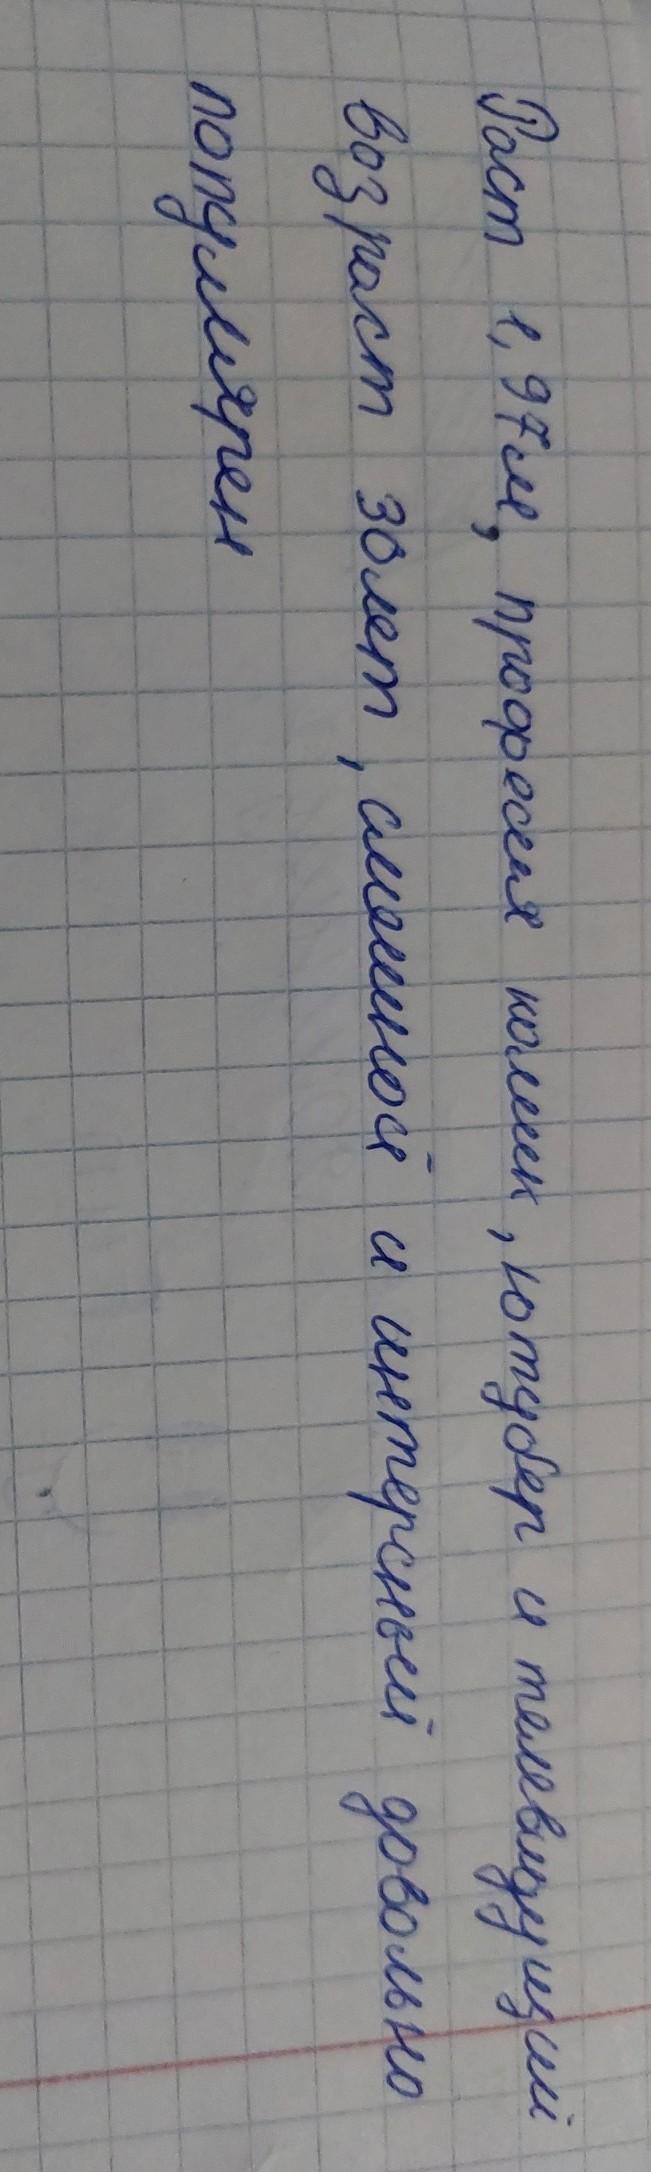 Раст 1,97м, професия комик, ютубер и телевидущий
возраст 30лет, смешной и интерсный довольно
популярен